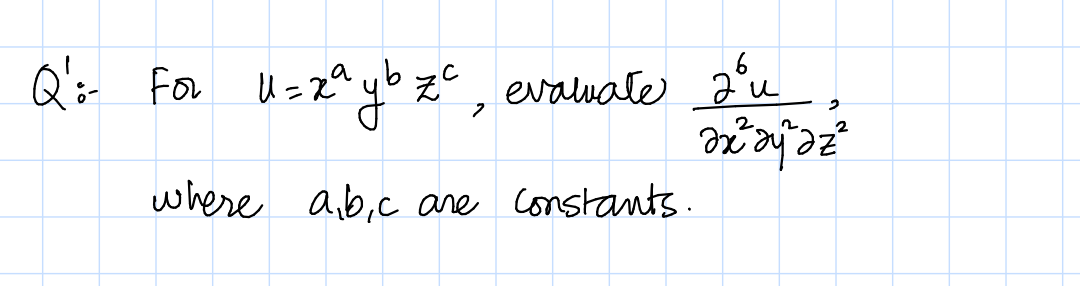 Q':- For u = x^a y^b z^c, evaluate ∂^6u/∂x^2∂y^2∂z^2,
where a,b,c are constants.